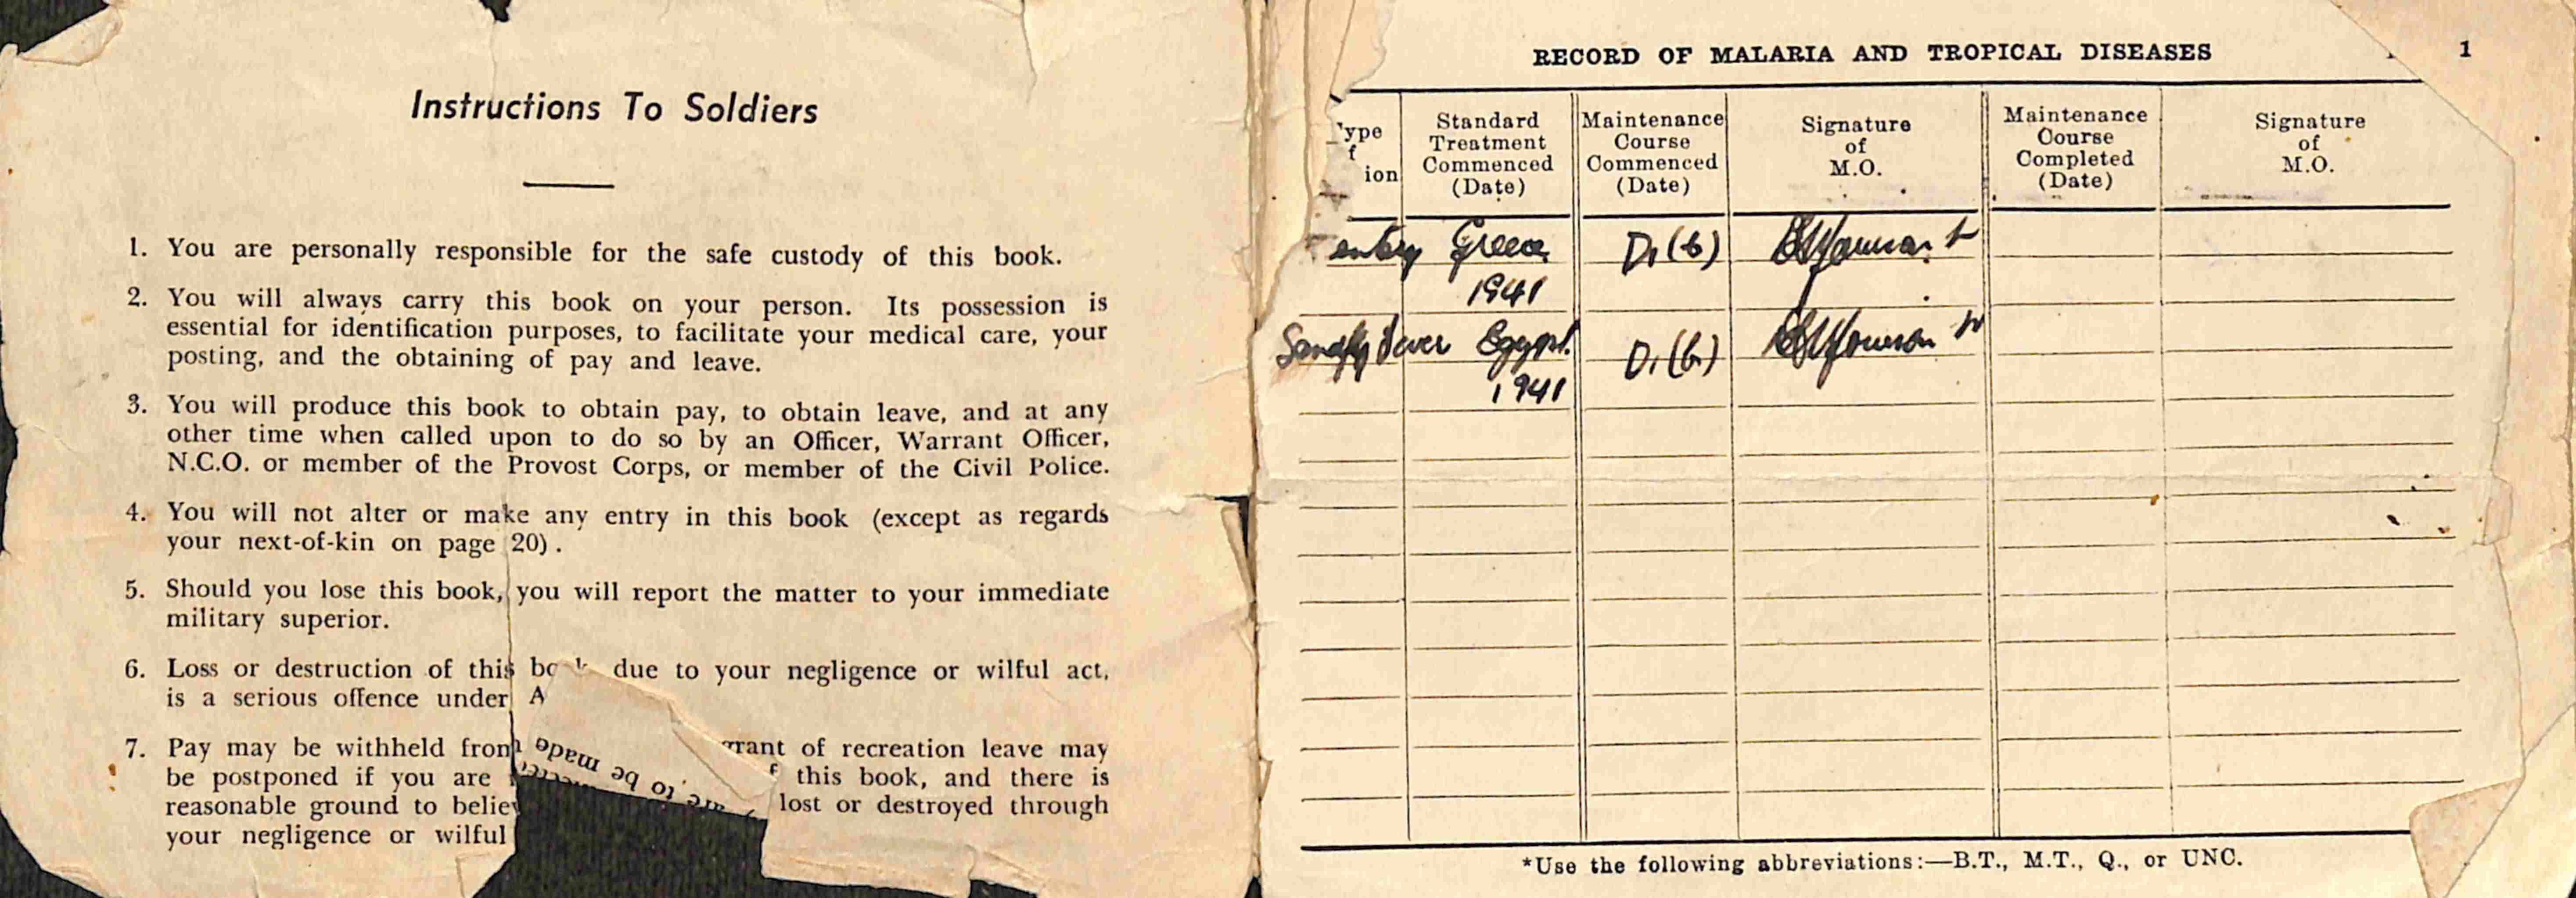 Instructions To Soldiers
1. You are personally responsible for the safe custody of this book.
2. You will always carry this book on your person. Its possession is
essential for identification purposes, to facilitate your medical care, your
posting, and the obtaining of pay and leave.
3. You will produce this book to obtain pay, to obtain leave, and at any
other time when called upon to do so by an Officer, Warrant Officer,
N.C.O. or member of the Provost Corps, or member of the Civil Police.
4. You will not alter or make any entry in this book (except as regards
your next-of-kin on page 20).
5. Should you lose this book, you will report the matter to your immediate
military superior.
6. Loss or destruction of this due to your negligence or wilful act,
is a serious offence under A
7. Pay may be withheld from of recreation leave may
be postponed if you are this book, and there is
reasonable ground to lost or destroyed through
your negligence or wilful
to be made
RECORD OF MALARIA AND TROPICAL DISEASES 1
ype
f
ion
Standard
Treatment
Commenced
(Date)
Maintenance
Course
Commenced
(Date)
Signature
of
M.O.
Maintenance
Course
Completed
(Date)
Signature
of
M.O.
entery Greece D1(b)
1941
Sandfly fever Egypt. D1(b)
1941
*Use the following abbreviations:—B.T., M.T., Q., or UNC.